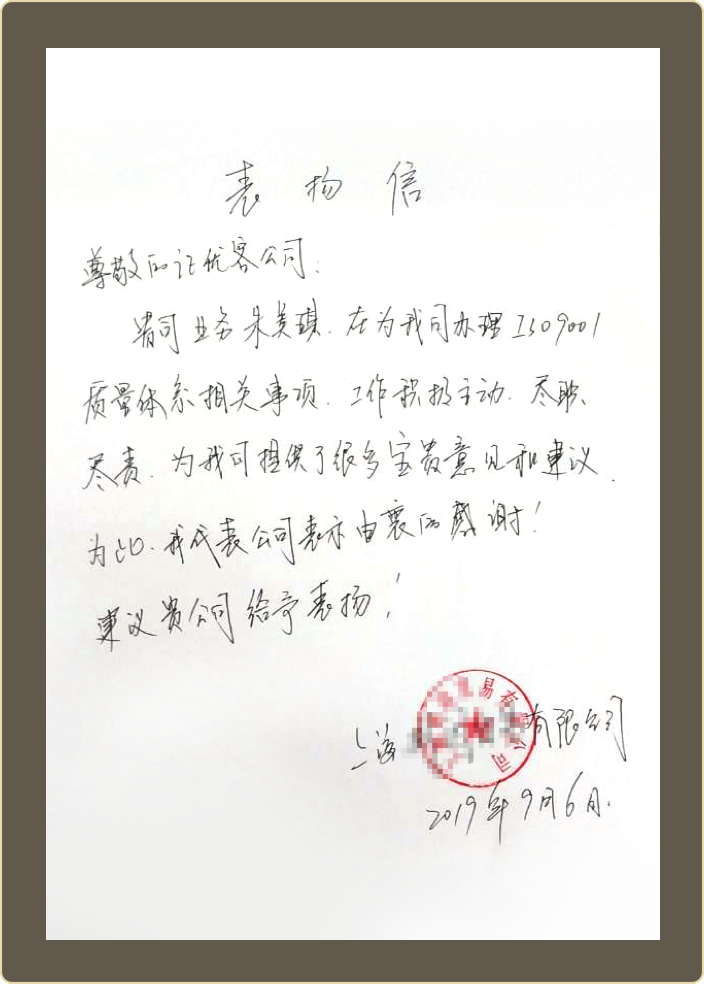 表扬信
尊敬的证优客公司：
贵司业务朱美琪．在为我司办理ISO9001
质量体系相关事项．工作积极主动．尽职、
尽责．为我司提供了很多宝贵意见和建议．
为此．我代表公司表示由衷的感谢！
建议贵公司给予表扬！
上海 有限公司
易有 公司
2019年9月6日．